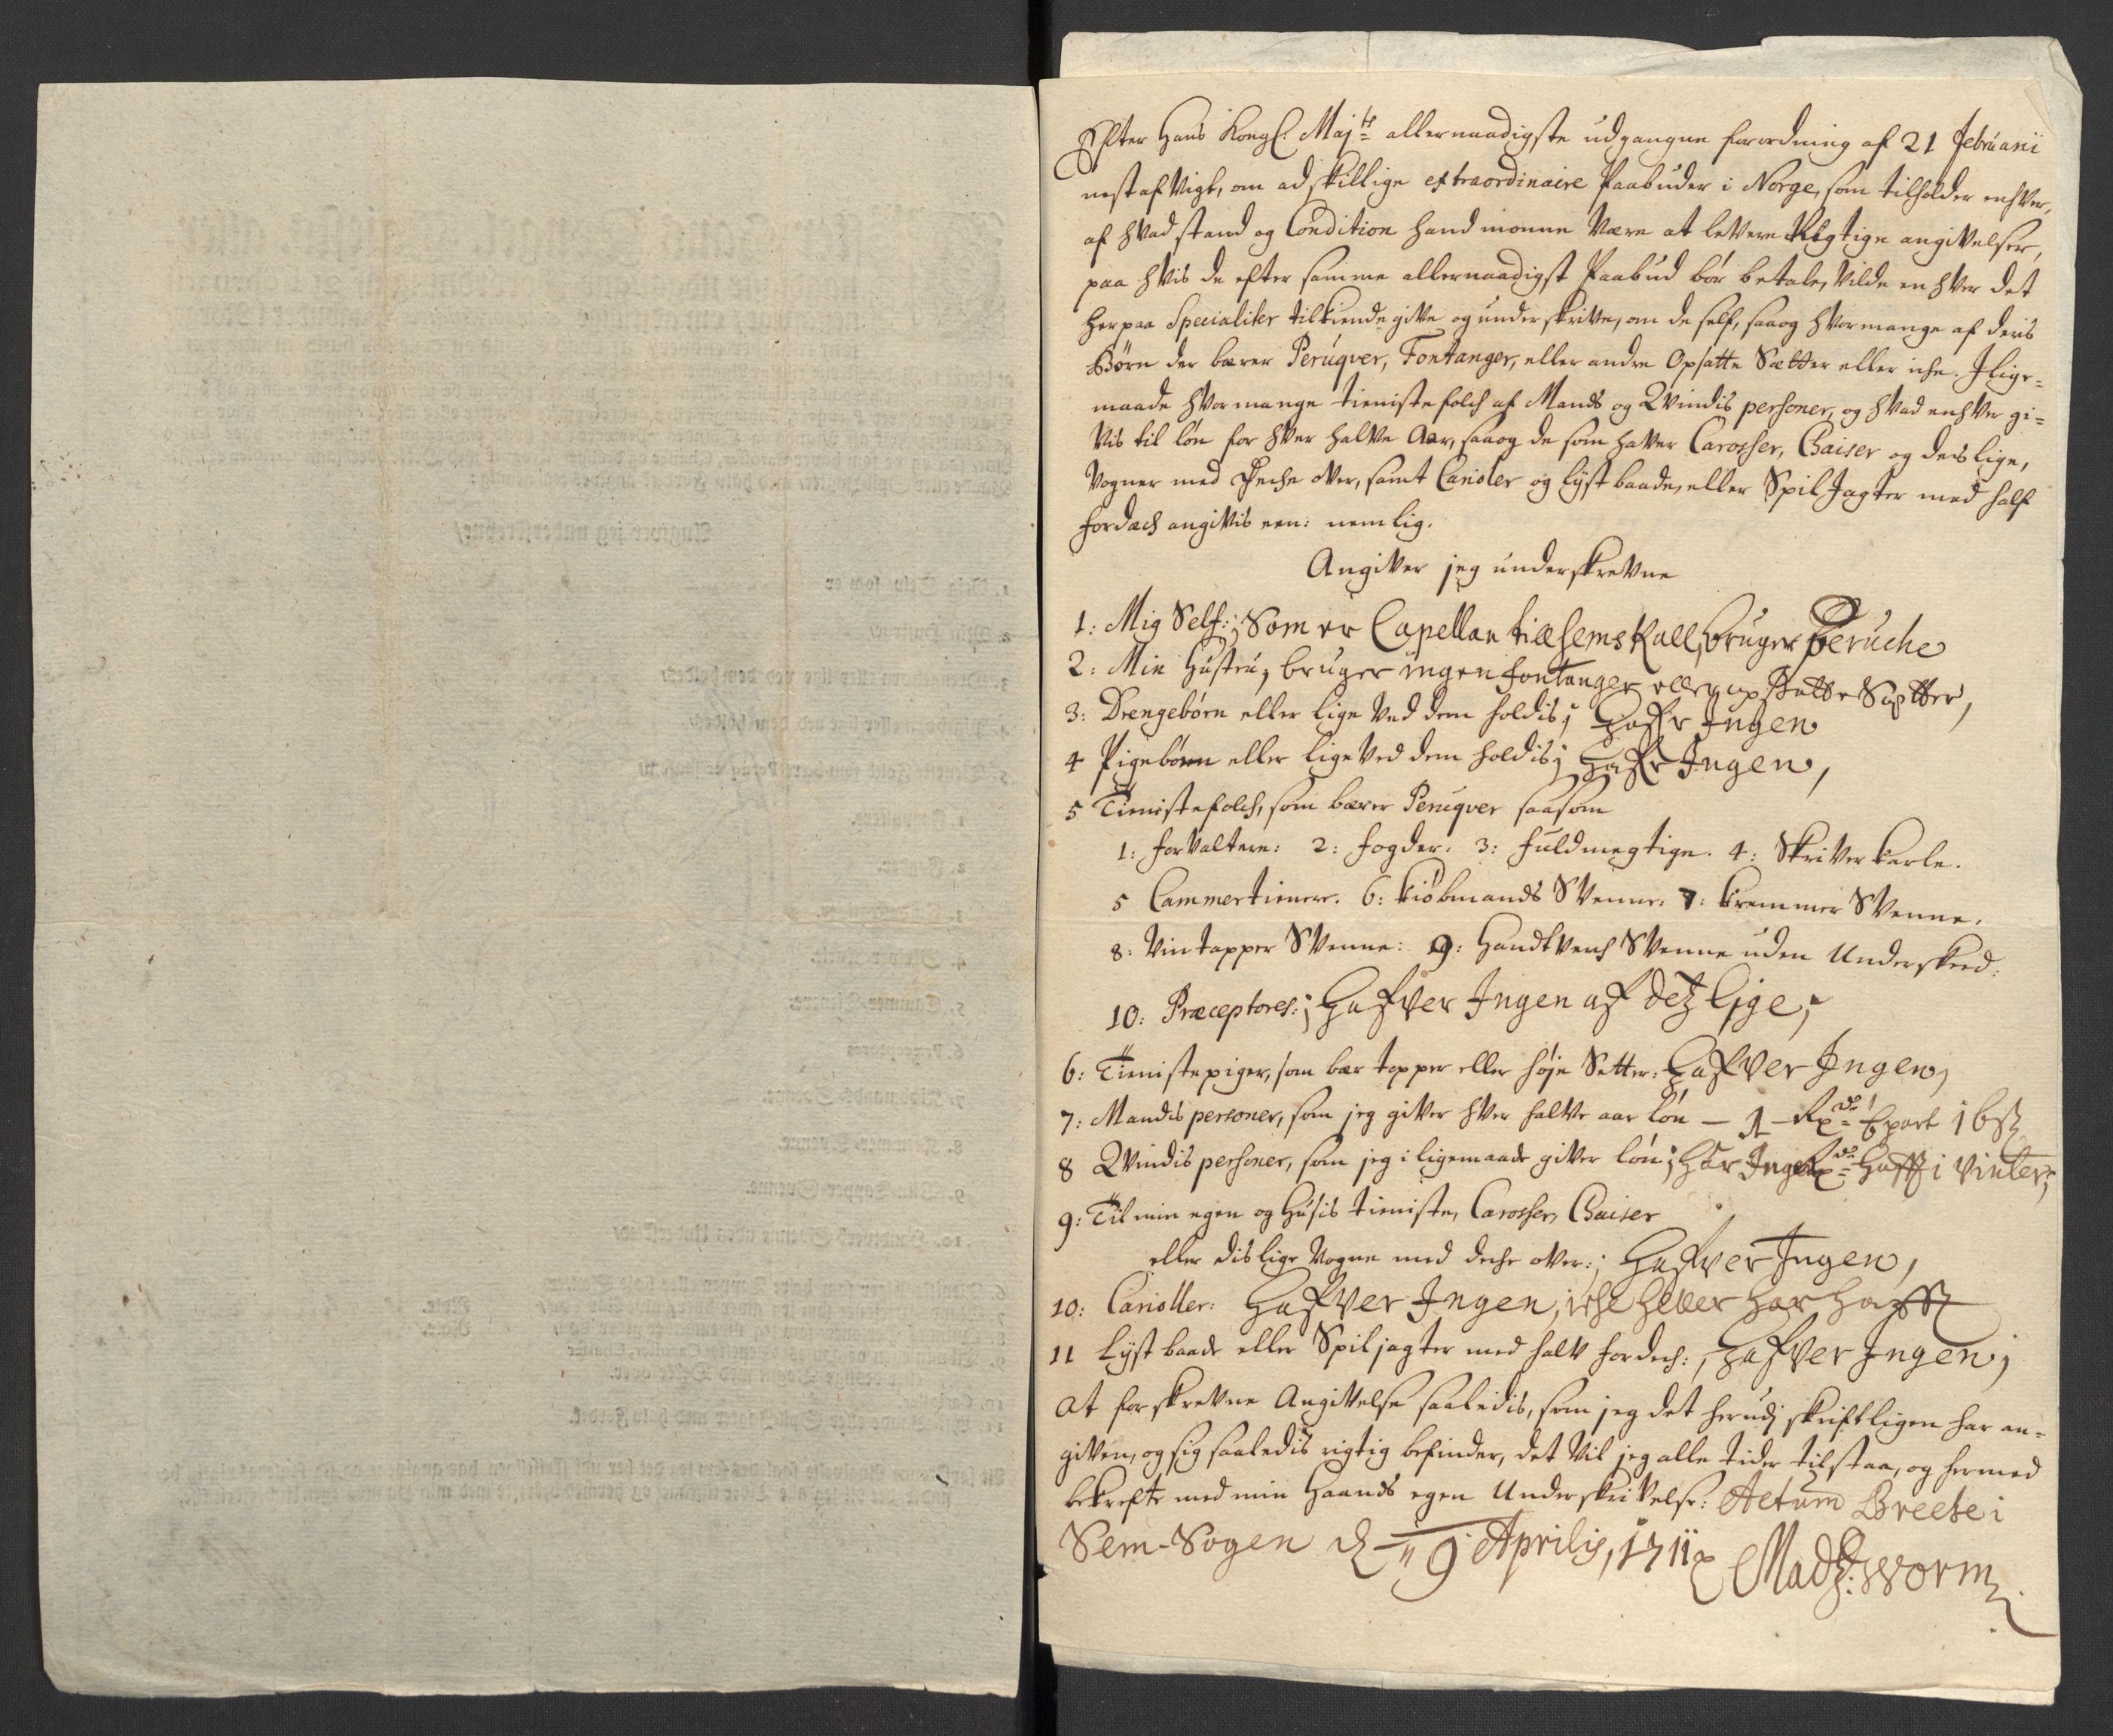 Efter Hans Kongl. Majts allernaadigste udgangne forordning af 21 Februarii
nest afvigt, om adskillige extraordinaire Paabuder i Norge, som tilholder enhver,
af hvad stand og Condition hand monne være at levere Rigtige angivelser,
paa hvis de efter samme allernaadigst Paabud bør betale, vilde en hver det
her paa Specialiter tilkiende give og underskrive, om de self, saa og hvor mange af deris
Børn der bærer Peruqver, Fontanger, eller andre Opsatte Sætter eller iche. Jlige-
maade hvor mange tieniste folch af Mands og Qvindis personer, og hvad enhver gi-
vis til løn for hver halve Aar, saa og de som haver Carosser, Chaiser og deslige,
Vogner med Deche over, samt Carioler og lyst baade, eller Spil Jagter med half
fordæch angivis een: nemlig.
Angiver jeg underskrevne
1: Mig Self:; Som er Capellan till Sems Kall, bruger Peruche
2: Min Hustru; bruger ingen fontanger eller opsatte Sætter,
3: Drengebørn eller lige ved dem holdis; Hafr Ingen
4 Pigebørn eller lige ved dem holdis; Hafr Ingen,
5 Tienistefolch, som bærer Peruqver saasom
1: forvaltere: 2: fogder. 3: fuldmegtige. 4: Skriver karle.
5 Cammertienere. 6: kiøbmands Svenne. 7: kremmer Svenne.
8: Vintapper Svenne: 9: Handtverch Svenne uden Underskeed:
10: Præceptores:; Hafver Ingen af detz lige;
6: Tienistepiger, som bær topper eller høje Setter: Hafver Ingen,
7: Mandis personer, som jeg giver hver halve aar løn – 1 – Rxdr 6 part 16 sz
8 Qvindis personer, som jeg i ligemaade giver løn; Har Ingen Rxdr Hafft i vinter;
9: Til min egen og Husis tieniste, Carosser, Chaiser
eller dislige Vogne med deche over:; Hafver Ingen,
10: Carioller: Hafver Ingen, iche heller har hafft
11 Lyst baade eller Spiljagter med halv fordech:, Hafver Ingen;
At forskrevne Angivelse saaledis, som jeg det herudj skriftligen har an-
given, og sig saaledis rigtig befinder, det vil jeg alle tider tilstaa, og hermed
bekrefte med min Haands egen Underskrivelse: Actum Breche i
Sem-Sogen d. 9 Aprilis, 1711
Madz: Worm